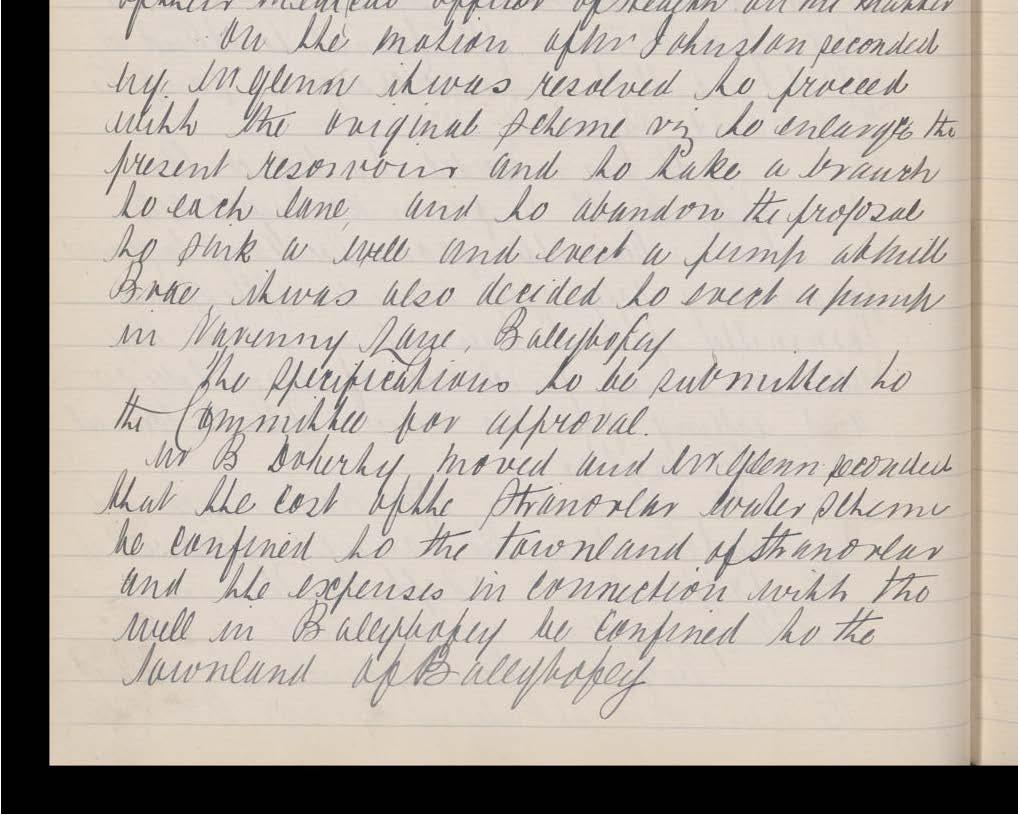 of their medical officer of health on the matter
On the motion of Mr Johnston seconded
by Mr Glenn it was resolved to proceed
with the original scheme viz to enlarge the
present resorvoir and to take a branch
to each lane, and to abandon the proposal
to sink a well and erect a pump at Mill
Brae, it was also decided to erect a pump
in Navenny Lane, Ballybofey
The specifications to be submitted to
the Committee for approval.
Mr B Doherty moved and Mr Glenn seconded
that the cost of the Stranorlar water scheme
be confined to the townland of Stranorlar
and the expenses in connection with the
well in Ballybofey be confined to the
townland of Ballybofey